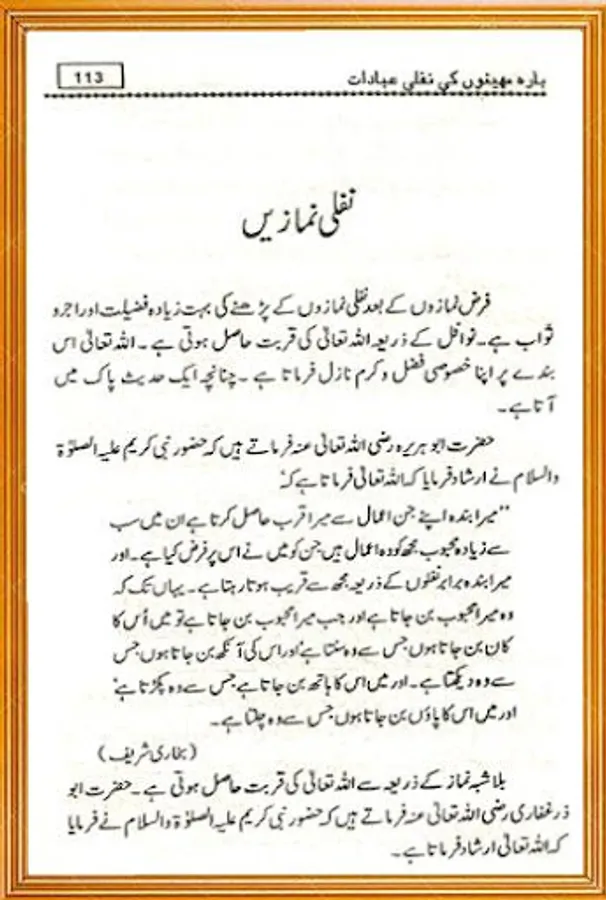 بارہ مہینوں کی نفلی عبادات
113
نفلی نمازیں
فرض نمازوں کے بعد نفلی نمازوں کے پڑھنے کی بہت زیادہ فضیلت اور اجر و
ثواب ہے۔ نوافل کے ذریعہ اللہ تعالیٰ کی قربت حاصل ہوتی ہے۔ اللہ تعالیٰ اس
بندے پر اپنا خصوصی فضل و کرم نازل فرماتا ہے۔ چنانچہ ایک حدیث پاک میں
آتا ہے۔
حضرت ابو ہریرہ رضی اللہ تعالیٰ عنہ فرماتے ہیں کہ حضور نبی کریم علیہ الصلوٰۃ
والسلام نے ارشاد فرمایا کہ اللہ تعالیٰ فرماتا ہے کہ
"میرا بندہ اپنے جن اعمال سے میرا قرب حاصل کرتا ہے ان میں سب
سے زیادہ محبوب مجھ کو وہ اعمال ہیں جن کو میں نے اس پر فرض کیا ہے۔ اور
میرا بندہ برابر نفلوں کے ذریعہ مجھ سے قریب ہوتا رہتا ہے۔ یہاں تک کہ
وہ میرا محبوب بن جاتا ہے اور جب میرا محبوب بن جاتا ہے تو میں اُس کا
کان بن جاتا ہوں جس سے وہ سنتا ہے اور اس کی آنکھ بن جاتا ہوں جس
سے وہ دیکھتا ہے۔ اور میں اس کا ہاتھ بن جاتا ہے جس سے وہ پکڑتا ہے'
اور میں اس کا پاؤں بن جاتا ہوں جس سے وہ چلتا ہے۔
(بخاری شریف)
بلاشبہ نماز کے ذریعہ سے اللہ تعالیٰ کی قربت حاصل ہوتی ہے۔ حضرت ابو
ذر غفاری رضی اللہ تعالیٰ عنہ فرماتے ہیں کہ حضور نبی کریم علیہ الصلوٰۃ والسلام نے فرمایا
کہ اللہ تعالیٰ ارشاد فرماتا ہے۔